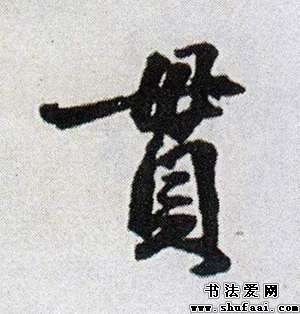 貫
书法爱网
www.shufaai.com